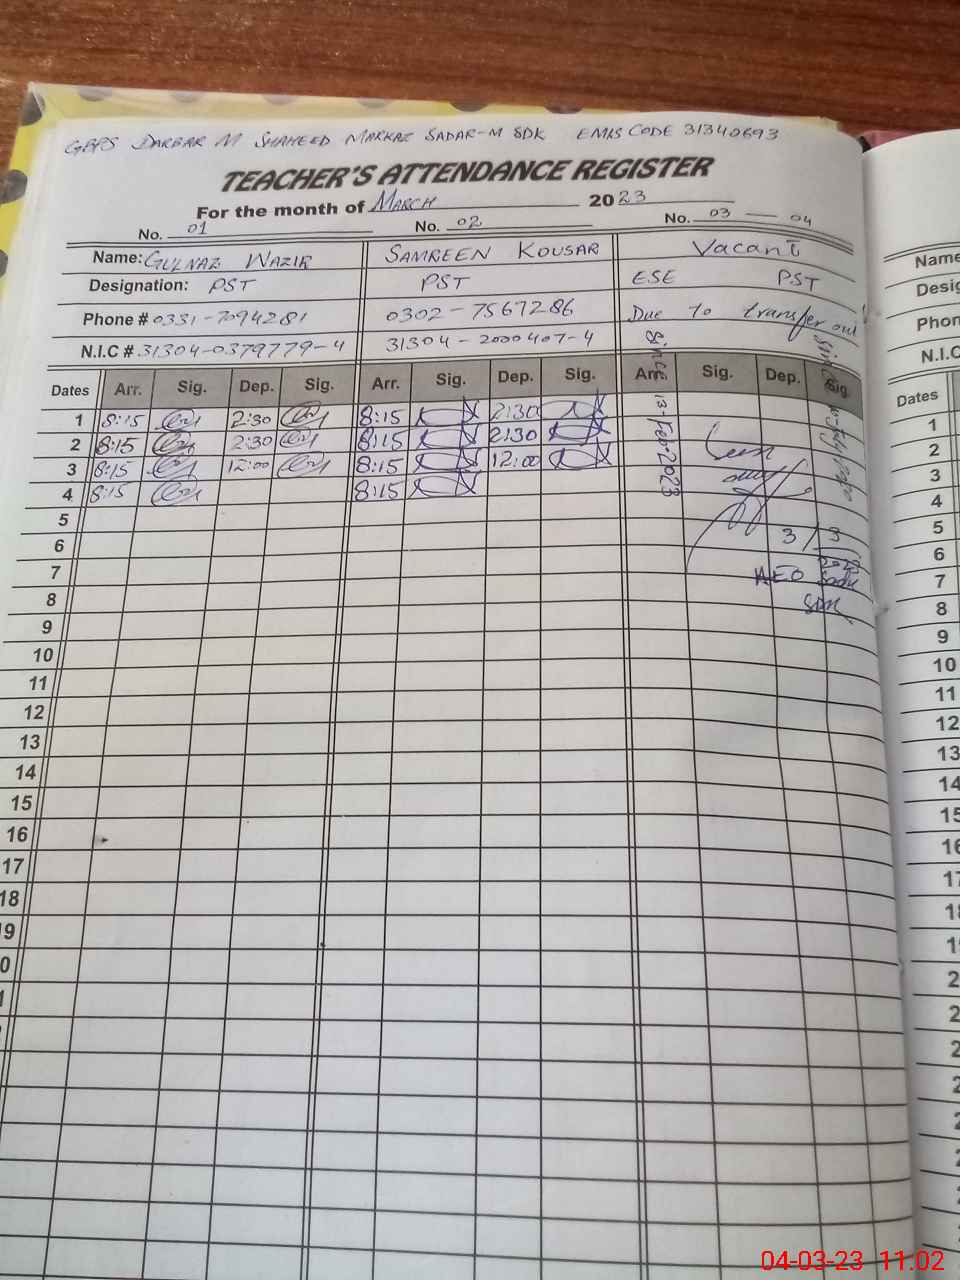 GBPS DARBAR M SHAHEED MARKAZ SADAR-M SDK EMIS CODE 31340693
TEACHER'S ATTENDANCE REGISTER
For the month of MARCH 2023
No. 01 No. 02 No. 03 — 04
Name: GULNAZ WAZIR SAMREEN KOUSAR Vacant
Designation: PST PST ESE PST
Phone # 0331-7094281 0302-7567286 Due to transfer out
N.I.C # 31304-0379779-4 31304-2000407-4
Since 13-Feb-2023
Since
Dates Arr. Sig. Dep. Sig. Arr. Sig. Dep. Sig. Arr. Sig. Dep. Sig.
1 8:15 2:30 8:15 2:30
2 8:15 2:30 8:15 2:30
3 8:15 12:00 8:15 12:00
4 8:15 8:15
Seen
5
6 3/3
7 AEO
8 SDK
9
10
11
12
13
14
15
16
17
18
9
0
1
Name
Desig
Phon
N.I.C
Dates
1
2
3
4
5
6
7
8
9
10
11
12
13
14
15
16
17
18
1
2
2
2
2
2
04-03-23 11:02